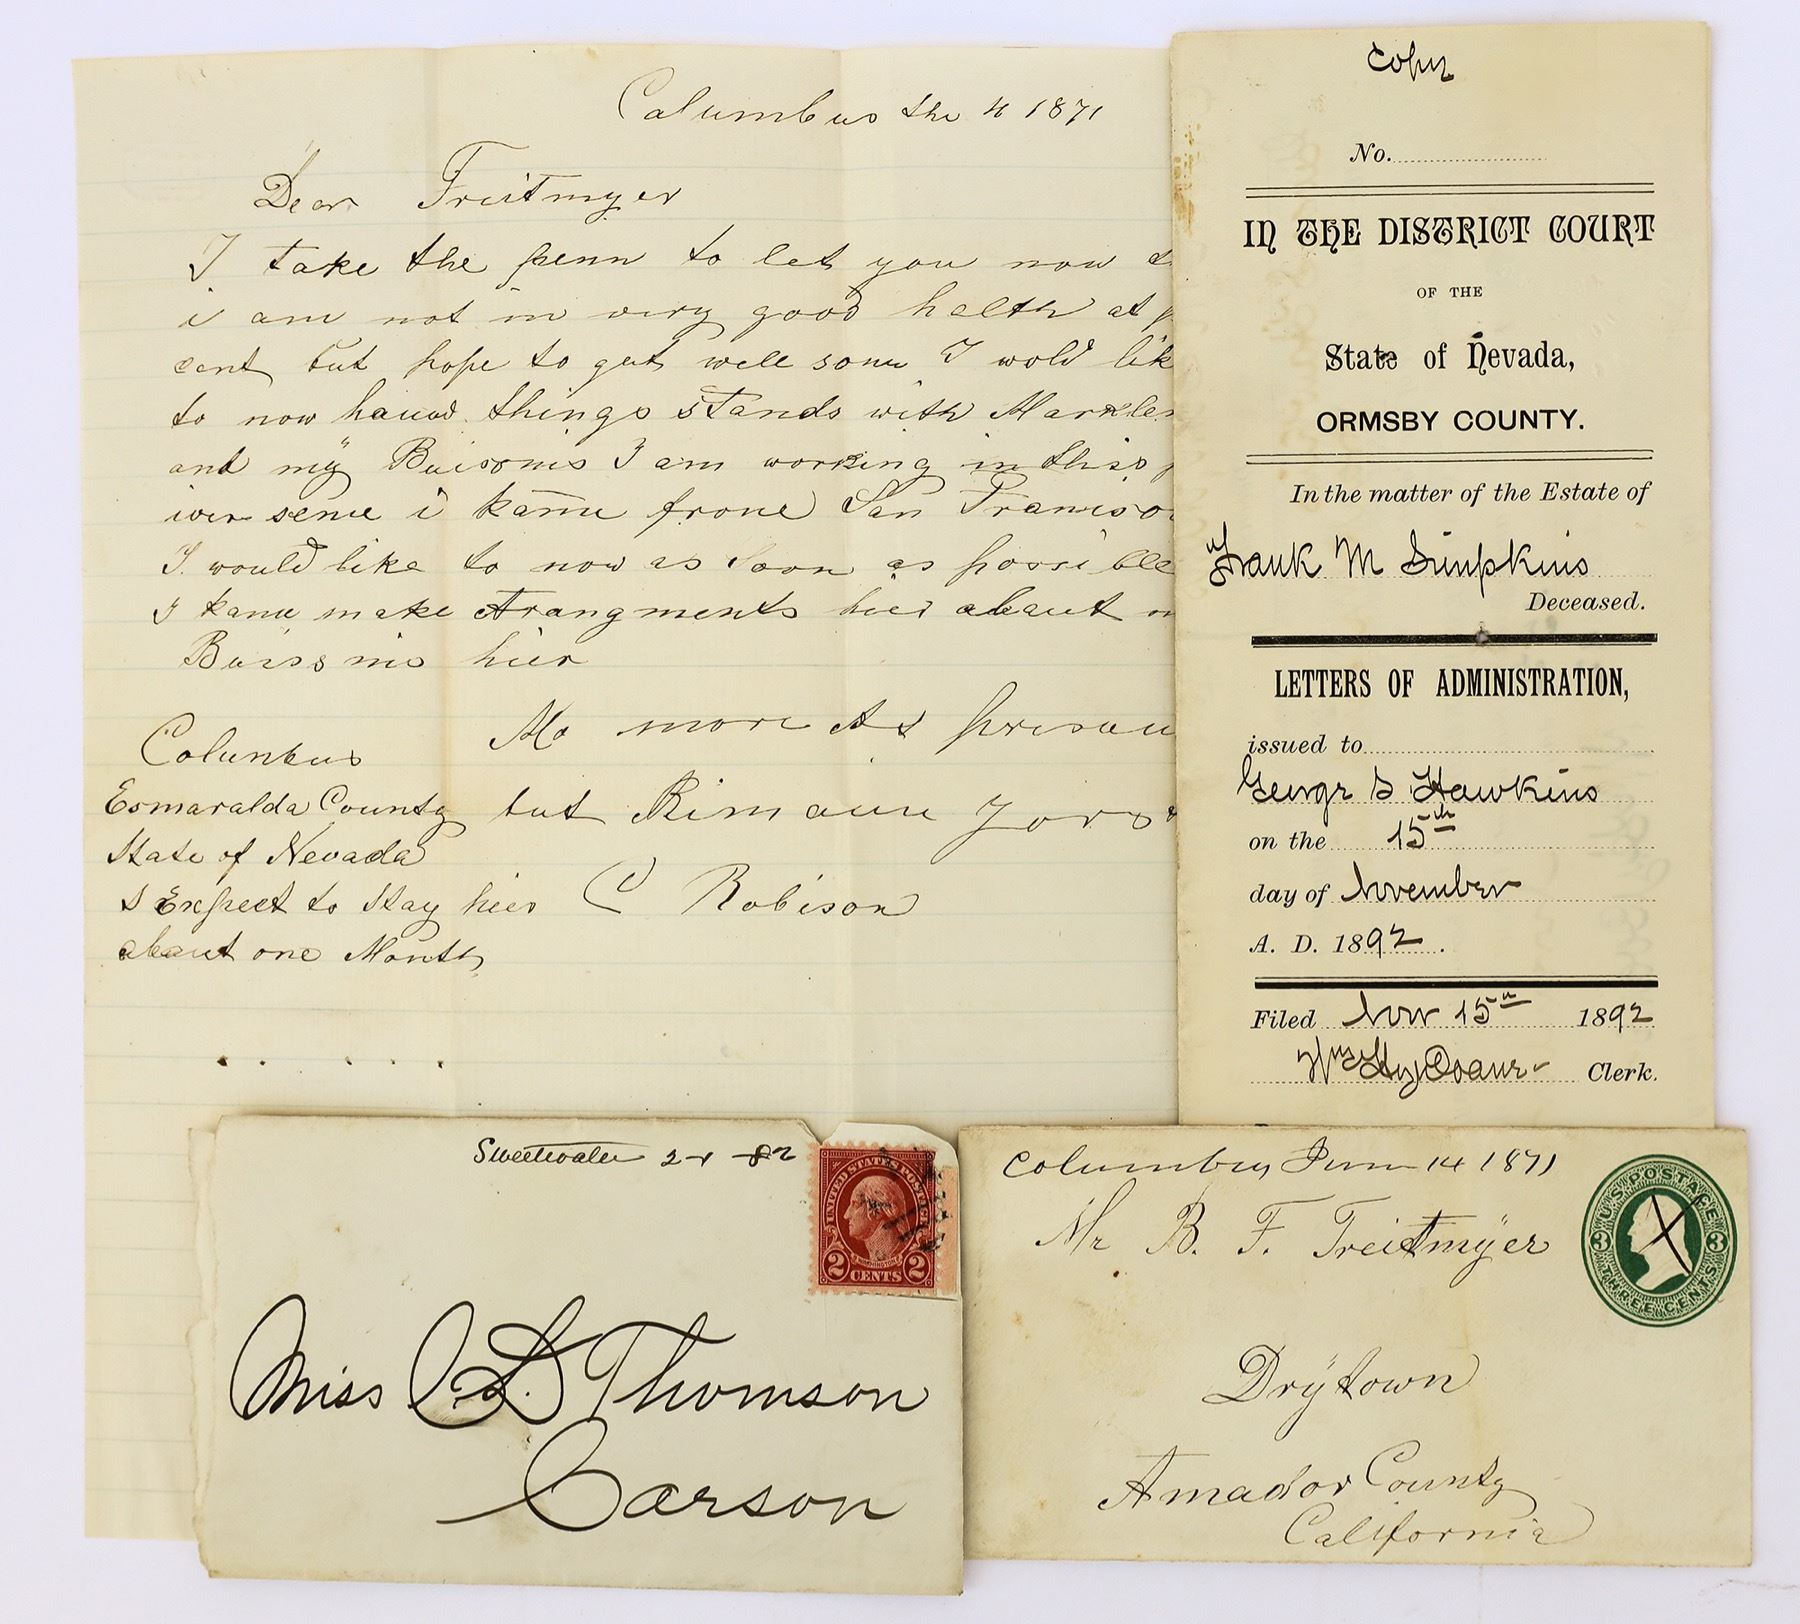 Calumbus the 4 1871
Dear Treitmyer
I take the penn to let you now
i am not in very good helth at
cent but hope to get well some I wold lik
to now hauw things stands with Markle
and my Buisonis I am working in this
iver senie i kame frone San Francisco
I would like to now as soon as possible
I kane make Arangments hier abaut
Buissnis hier
No more At presau
but Rimaine Jors
C Robison
Columbus
Esmaralda County
State of Nevada
I Expect to Stay hier
abaut one Month
Copy
No.
IN THE DISTRICT COURT
OF THE
State of Nevada,
ORMSBY COUNTY.
In the matter of the Estate of
Frank M Simpkins
Deceased.
LETTERS OF ADMINISTRATION,
issued to
George S Hawkins
on the 15th
day of November
A. D. 1892.
Filed Nov 15th 1892
Wm Hy Doane Clerk.
Sweetwater 2-1-82
UNITED STATES POSTAGE
WASHINGTON
2 CENTS 2
Miss C. L. Thomson
Carson
Columbus June 14 1871
Mr B. F. Treitmÿer
U.S. POSTAGE
3 3
THREE CENTS
Drÿtown
Amador County
California